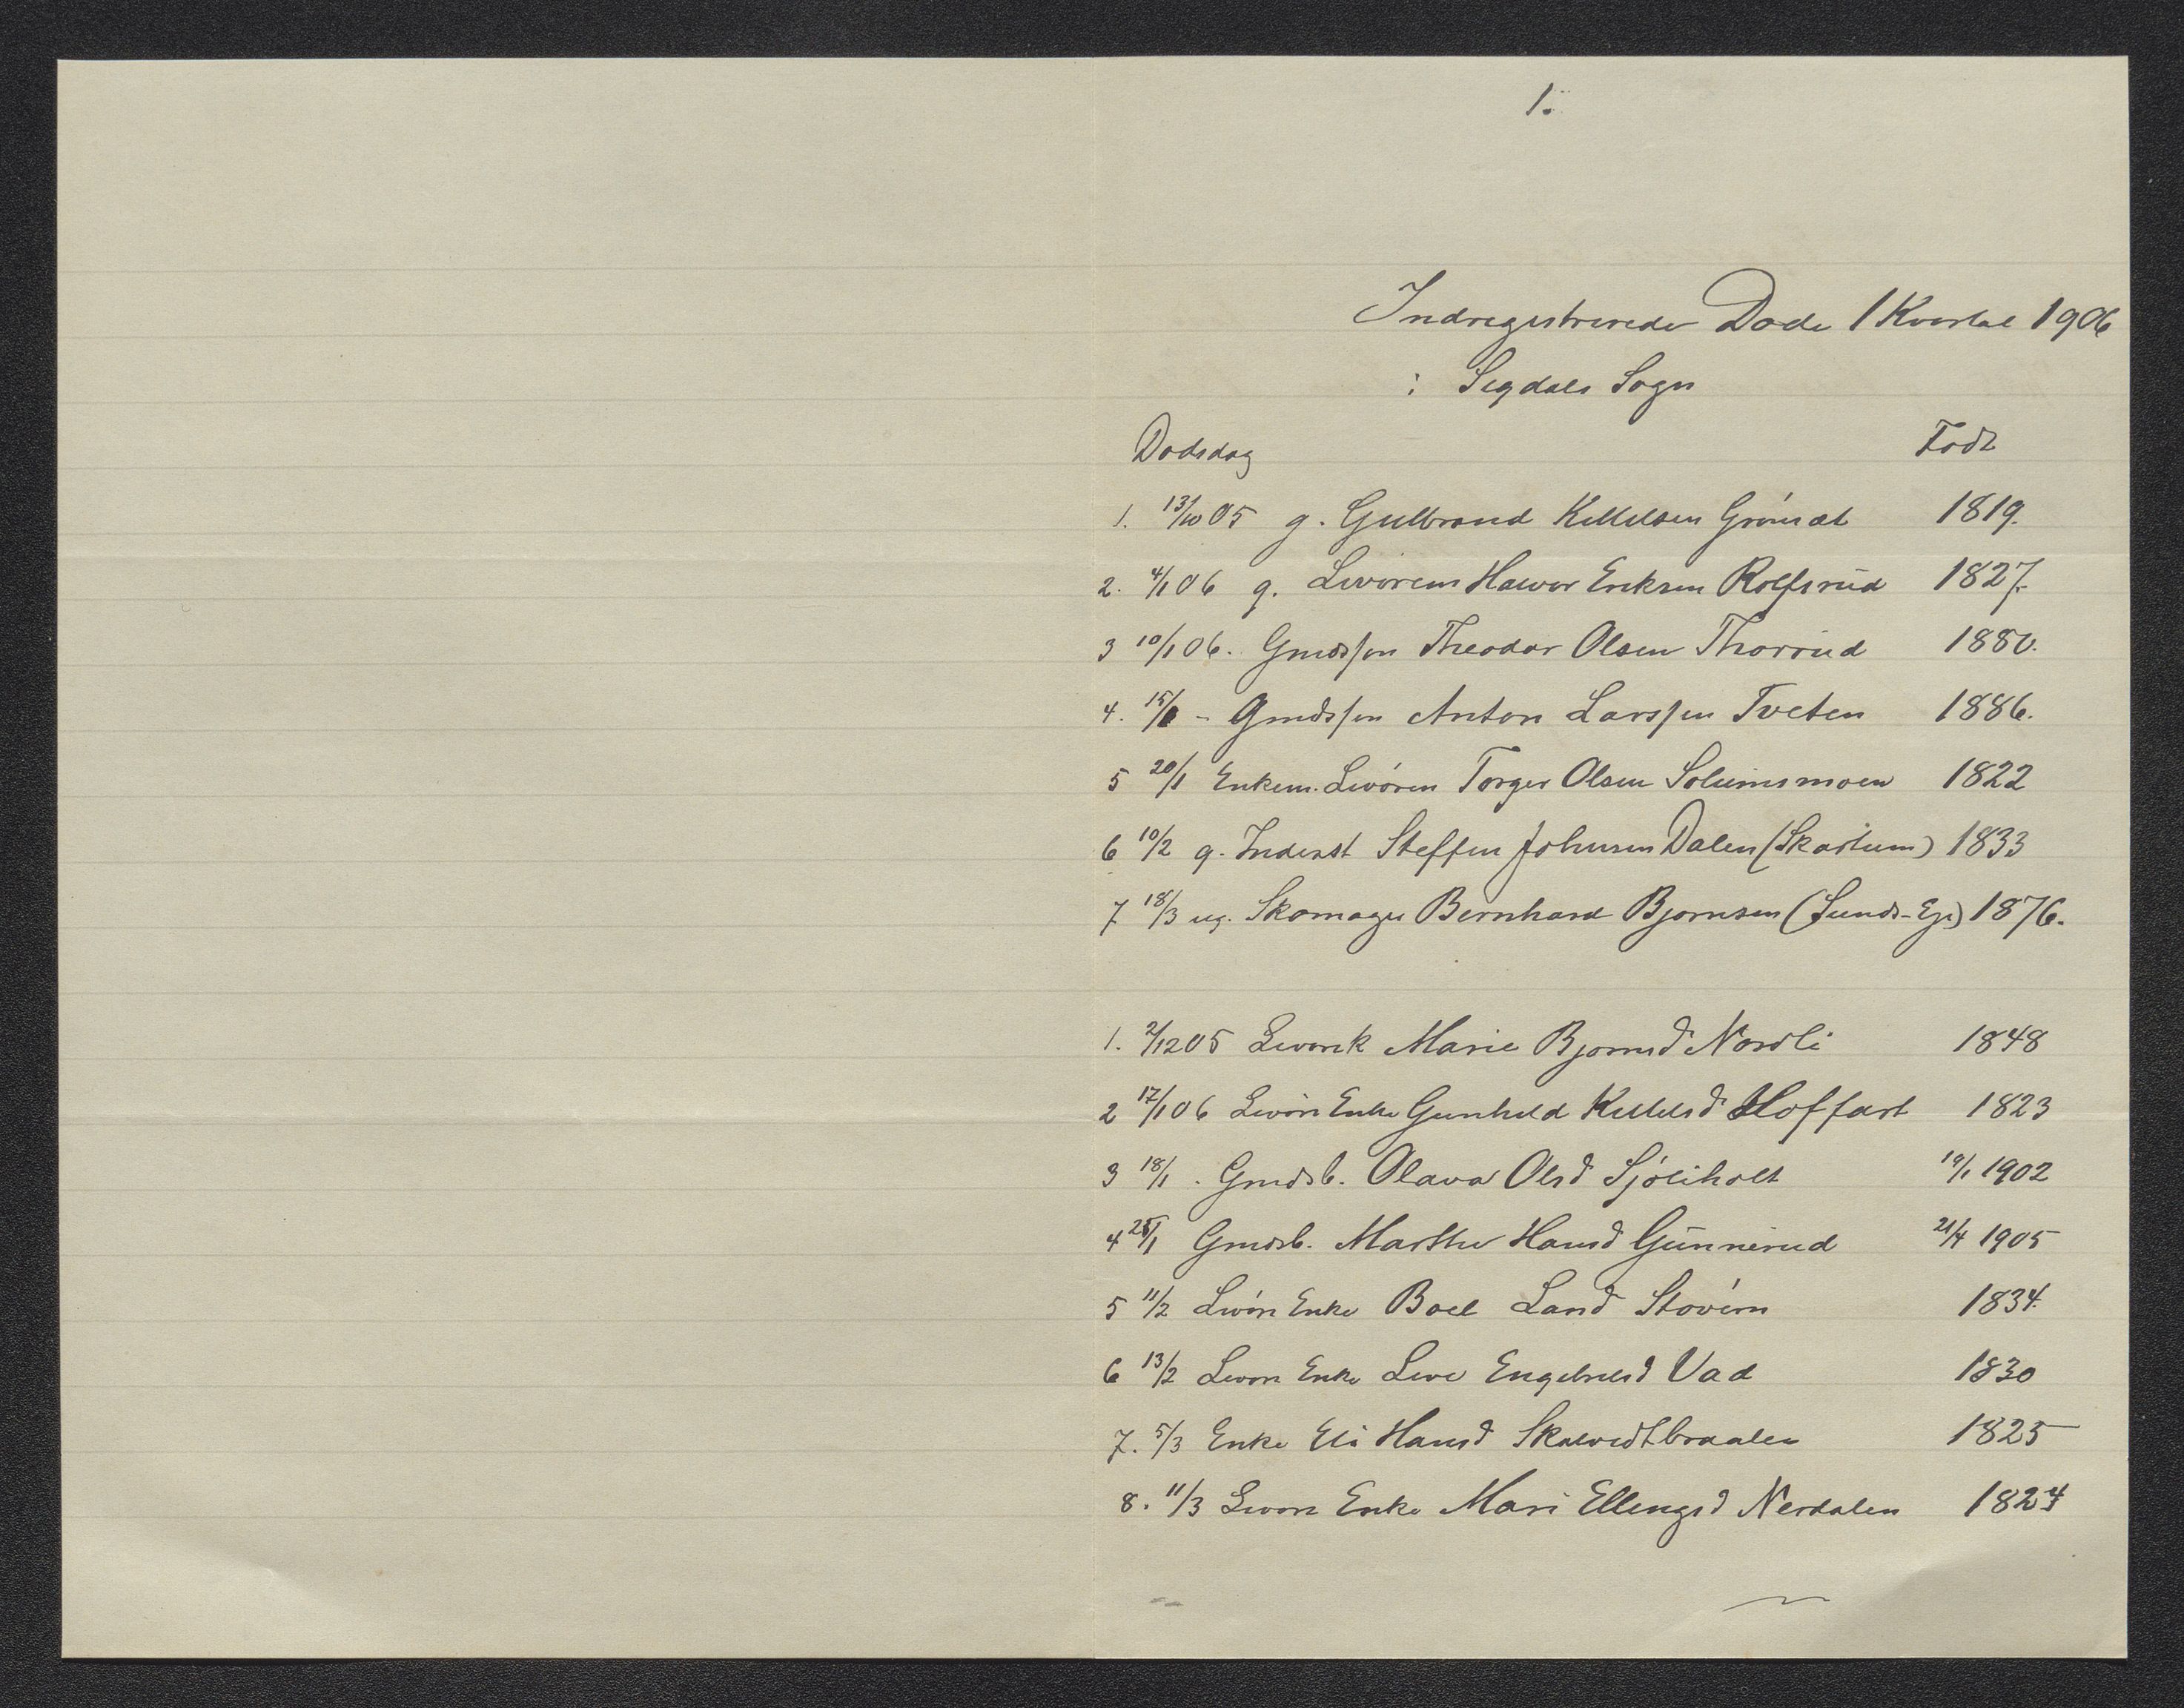 1.
Indregistrerede Døde 1 Kvartal 1906
i Sigdals Sogn
Dødsdag Født
1. 13/10 05 g. Gulbrand Kittilsen Grønset 1819.
2. 4/1 06 g. Hawor Eriksen Rolfsrud 1827.
3 10/1 06. Gmdssøn Theodor Olsen Thorrud 1880.
4. 15/1 - Gmdssøn Anton Larssen Tveten 1886.
5 20/1 Enkem. Torger Olsen Solumsmoen 1822
6 10/2 g. Inderst Steffen Johnsen Dalen (Skartum) 1833
7 18/3 ug. Skomager Bernhard Bjørnsen (Lunds-Eje) 1876.
1. 2/12 05 Marie Bjørnsd Nordli 1848
2 17/1 06 Enke Gunhild Kittilsd Hoffart 1823
3 18/1 . Gmdsb. Olava Olsd Sjøliholt 19/1 1902
4 25/1 Gmdsb. Marthe Hansd Gunnerud 21/4 1905
5 11/2 Enke Boel Larsd Stovern 1834.
6 13/2 Enke Live Engebretsd Vad 1830
7. 5/3 Enke Eli Hansd Skalvedtbraaten 1825
8. 11/3 Enke Mari Ellingsd Nerdalen 1824